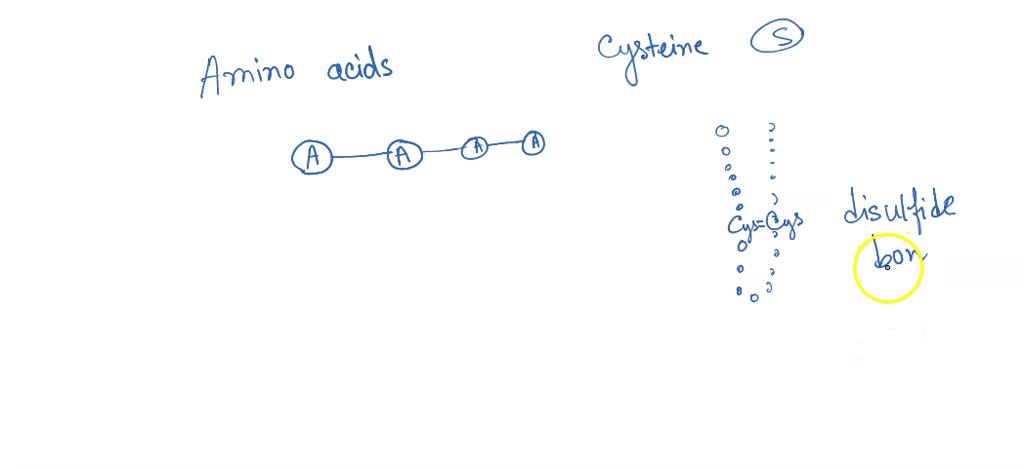 Amino acids
Cysteine S
A A A A
Cys=Cys
disulfide
bon